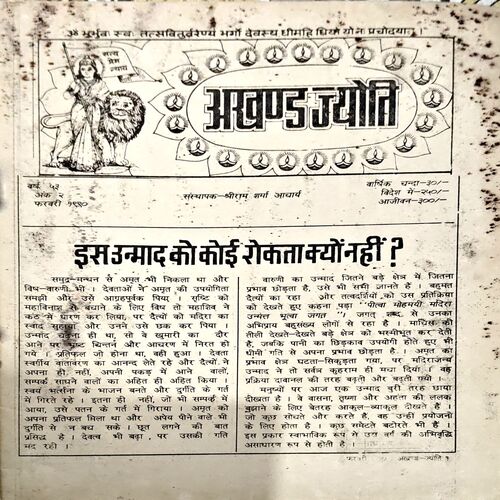 ॐ भूर्भुवः स्वः तत्सवितुर्वरेण्यं भर्गो देवस्य धीमहि धियो योनः प्रचोदयात् ।
सत्य
प्रेम
न्याय
अखण्ड ज्योति
वर्ष ५३
अंक २
फरवरी १९९०
संस्थापक-श्रीराम शर्मा आचार्य
वार्षिक चन्दा-३०/-
विदेश में-२५०/-
आजीवन-३००/-
इस उन्माद को कोई रोकता क्यों नहीं ?
समुद्र-मन्थन से अमृत भी निकला था और
विष-वारुणी भी । देवताओं ने अमृत की उपयोगिता
समझी और उसे आग्रहपूर्वक पिया । सृष्टि को
महाविनाश से बचाने के लिए विष तो महाशिव ने
कंठ में धारण कर लिया, पर दैत्यों को मदिरा का
स्वाद सुहाया और उनने उसे छक कर पिया ।
उन्माद चढ़ना ही था, सो वे खुमारी से दौर
आने पर भ्रष्ट चिन्तन और आचरण में निरत हो
गये । प्रतिफल जो होना था, वही हुआ । देवता
स्वर्गीय वातावरण का आनन्द लेते रहे और दैत्यों ने
अपना ही नहीं, अपनी पकड़ में आने वालों,
सम्पर्क साधने वालों का अहित ही अहित किया ।
स्वयं भर्त्सना के भाजन बनते और दुर्गति के गर्त
में गिरते रहे । इतना ही नहीं, जो भी सम्पर्क में
आया, उसे पतन के गर्त में गिराया । अमृत को
अपना प्रतिफल मिला था और अपेय पीने वाले भी
दुर्गति से न बच सके । छूत लगने की बात
प्रसिद्ध है । देवत्व भी बढ़ा, पर उसकी गति
मंद रही ।
वारुणी का उन्माद जितने बड़े क्षेत्र में, जितना
प्रभाव छोड़ता है, उसे भी सभी जानते हैं । बहुमत
दैत्यों का रहा और तत्वदर्शियों को उस प्रतिक्रिया
को देखते हुए कहना पड़ा "पीत्वा मोहमयीं मदिरा
उन्मत्त भूतं जगत्" । जगत् शब्द से उनका
अभिप्राय बहुसंख्य लोगों से रहा है । माचिस की
तीली देखते-देखते बड़े क्षेत्र को भस्मीभूत कर देती
है, जबकि पानी का छिड़काव उपयोगी होते हुए भी
धीमी गति से अपना प्रभाव छोड़ता है । अमृत का
प्रभाव क्षेत्र घटता-सिकुड़ता गया, पर मदिराजन्य
उन्माद ने तो सर्वत्र कुहराम ही मचा दिया । वह
प्रक्रिया दावानल की तरह बढ़ती और बढ़ती गयी ।
मनुष्यों पर आज एक उन्माद बुरी तरह छाया
दीखता है । वे वासना, तृष्णा और अहंता की ललक
बुझाने के लिए बेतरह आकुल-व्याकुल दीखते हैं ।
जो कुछ सोचते और करते हैं, वह उन्हीं प्रयोजनों
के लिए होता है । कुछ समेटते बटोरते भी हैं ।
इस प्रकार स्वाभाविक रूप से उस वर्ग की अभिवृद्धि
असाधारण रूप से होती है ।
फरवरी अखण्ड-ज्योति १